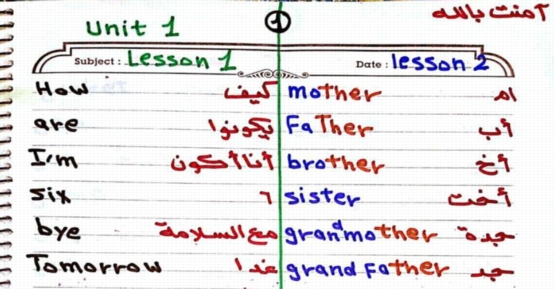 آمنت بالله
Unit 1
1
Subject : Lesson 1
Date : lesson 2
How كيف
are يكونوا
I'm أنا أكون
six ٦
bye مع السلامة
Tomorrow غدا
mother ام
FaTher أب
brother أخ
sister أخت
grandmother جدة
grand Father جد